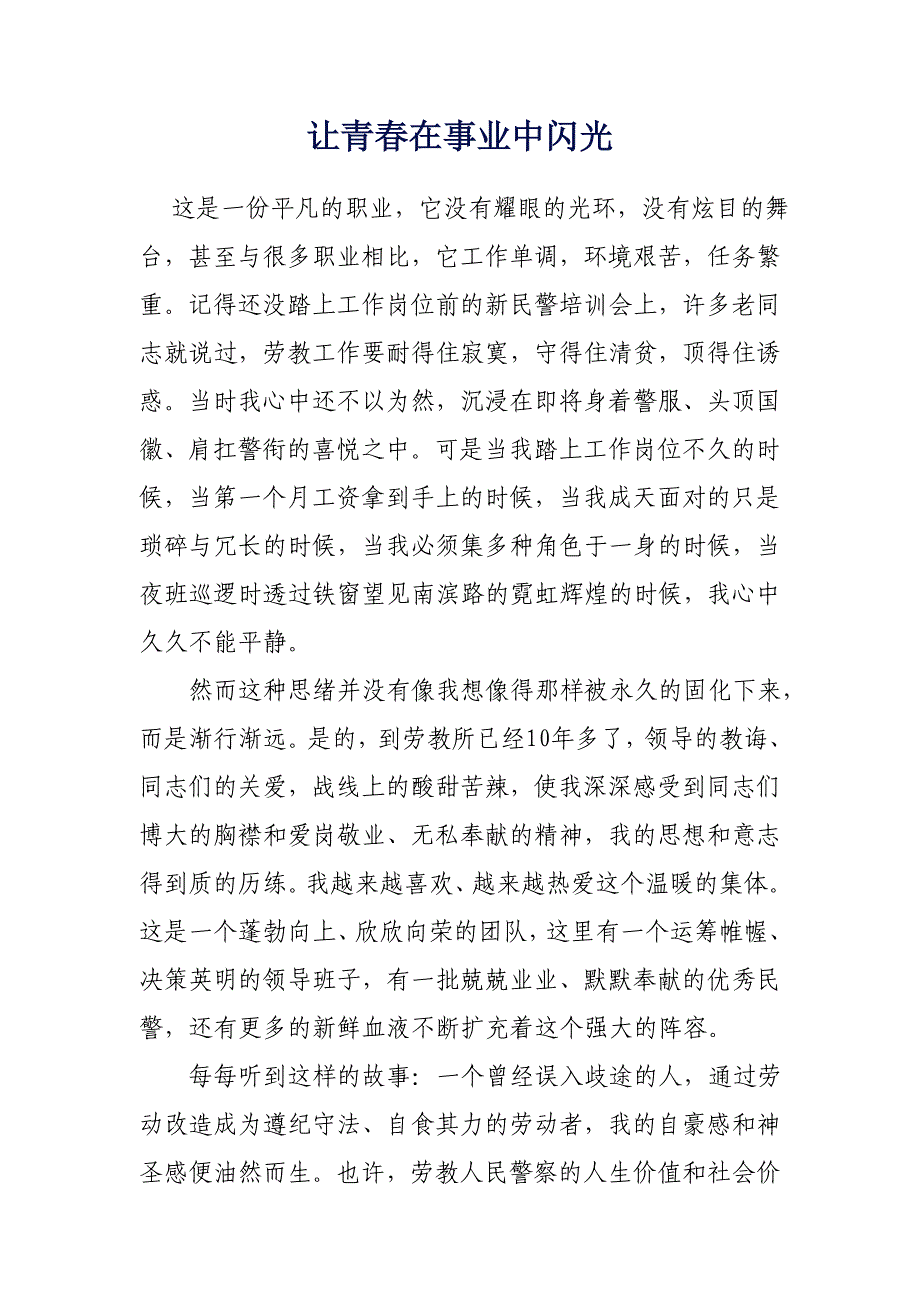 让青春在事业中闪光
这是一份平凡的职业，它没有耀眼的光环，没有炫目的舞
台，甚至与很多职业相比，它工作单调，环境艰苦，任务繁
重。记得还没踏上工作岗位前的新民警培训会上，许多老同
志就说过，劳教工作要耐得住寂寞，守得住清贫，顶得住诱
惑。当时我心中还不以为然，沉浸在即将身着警服、头顶国
徽、肩扛警衔的喜悦之中。可是当我踏上工作岗位不久的时
候，当第一个月工资拿到手上的时候，当我成天面对的只是
琐碎与冗长的时候，当我必须集多种角色于一身的时候，当
夜班巡逻时透过铁窗望见南滨路的霓虹辉煌的时候，我心中
久久不能平静。
然而这种思绪并没有像我想像得那样被永久的固化下来，
而是渐行渐远。是的，到劳教所已经10年多了，领导的教诲、
同志们的关爱，战线上的酸甜苦辣，使我深深感受到同志们
博大的胸襟和爱岗敬业、无私奉献的精神，我的思想和意志
得到质的历练。我越来越喜欢、越来越热爱这个温暖的集体。
这是一个蓬勃向上、欣欣向荣的团队，这里有一个运筹帷幄、
决策英明的领导班子，有一批兢兢业业、默默奉献的优秀民
警，还有更多的新鲜血液不断扩充着这个强大的阵容。
每每听到这样的故事：一个曾经误入歧途的人，通过劳
动改造成为遵纪守法、自食其力的劳动者，我的自豪感和神
圣感便油然而生。也许，劳教人民警察的人生价值和社会价